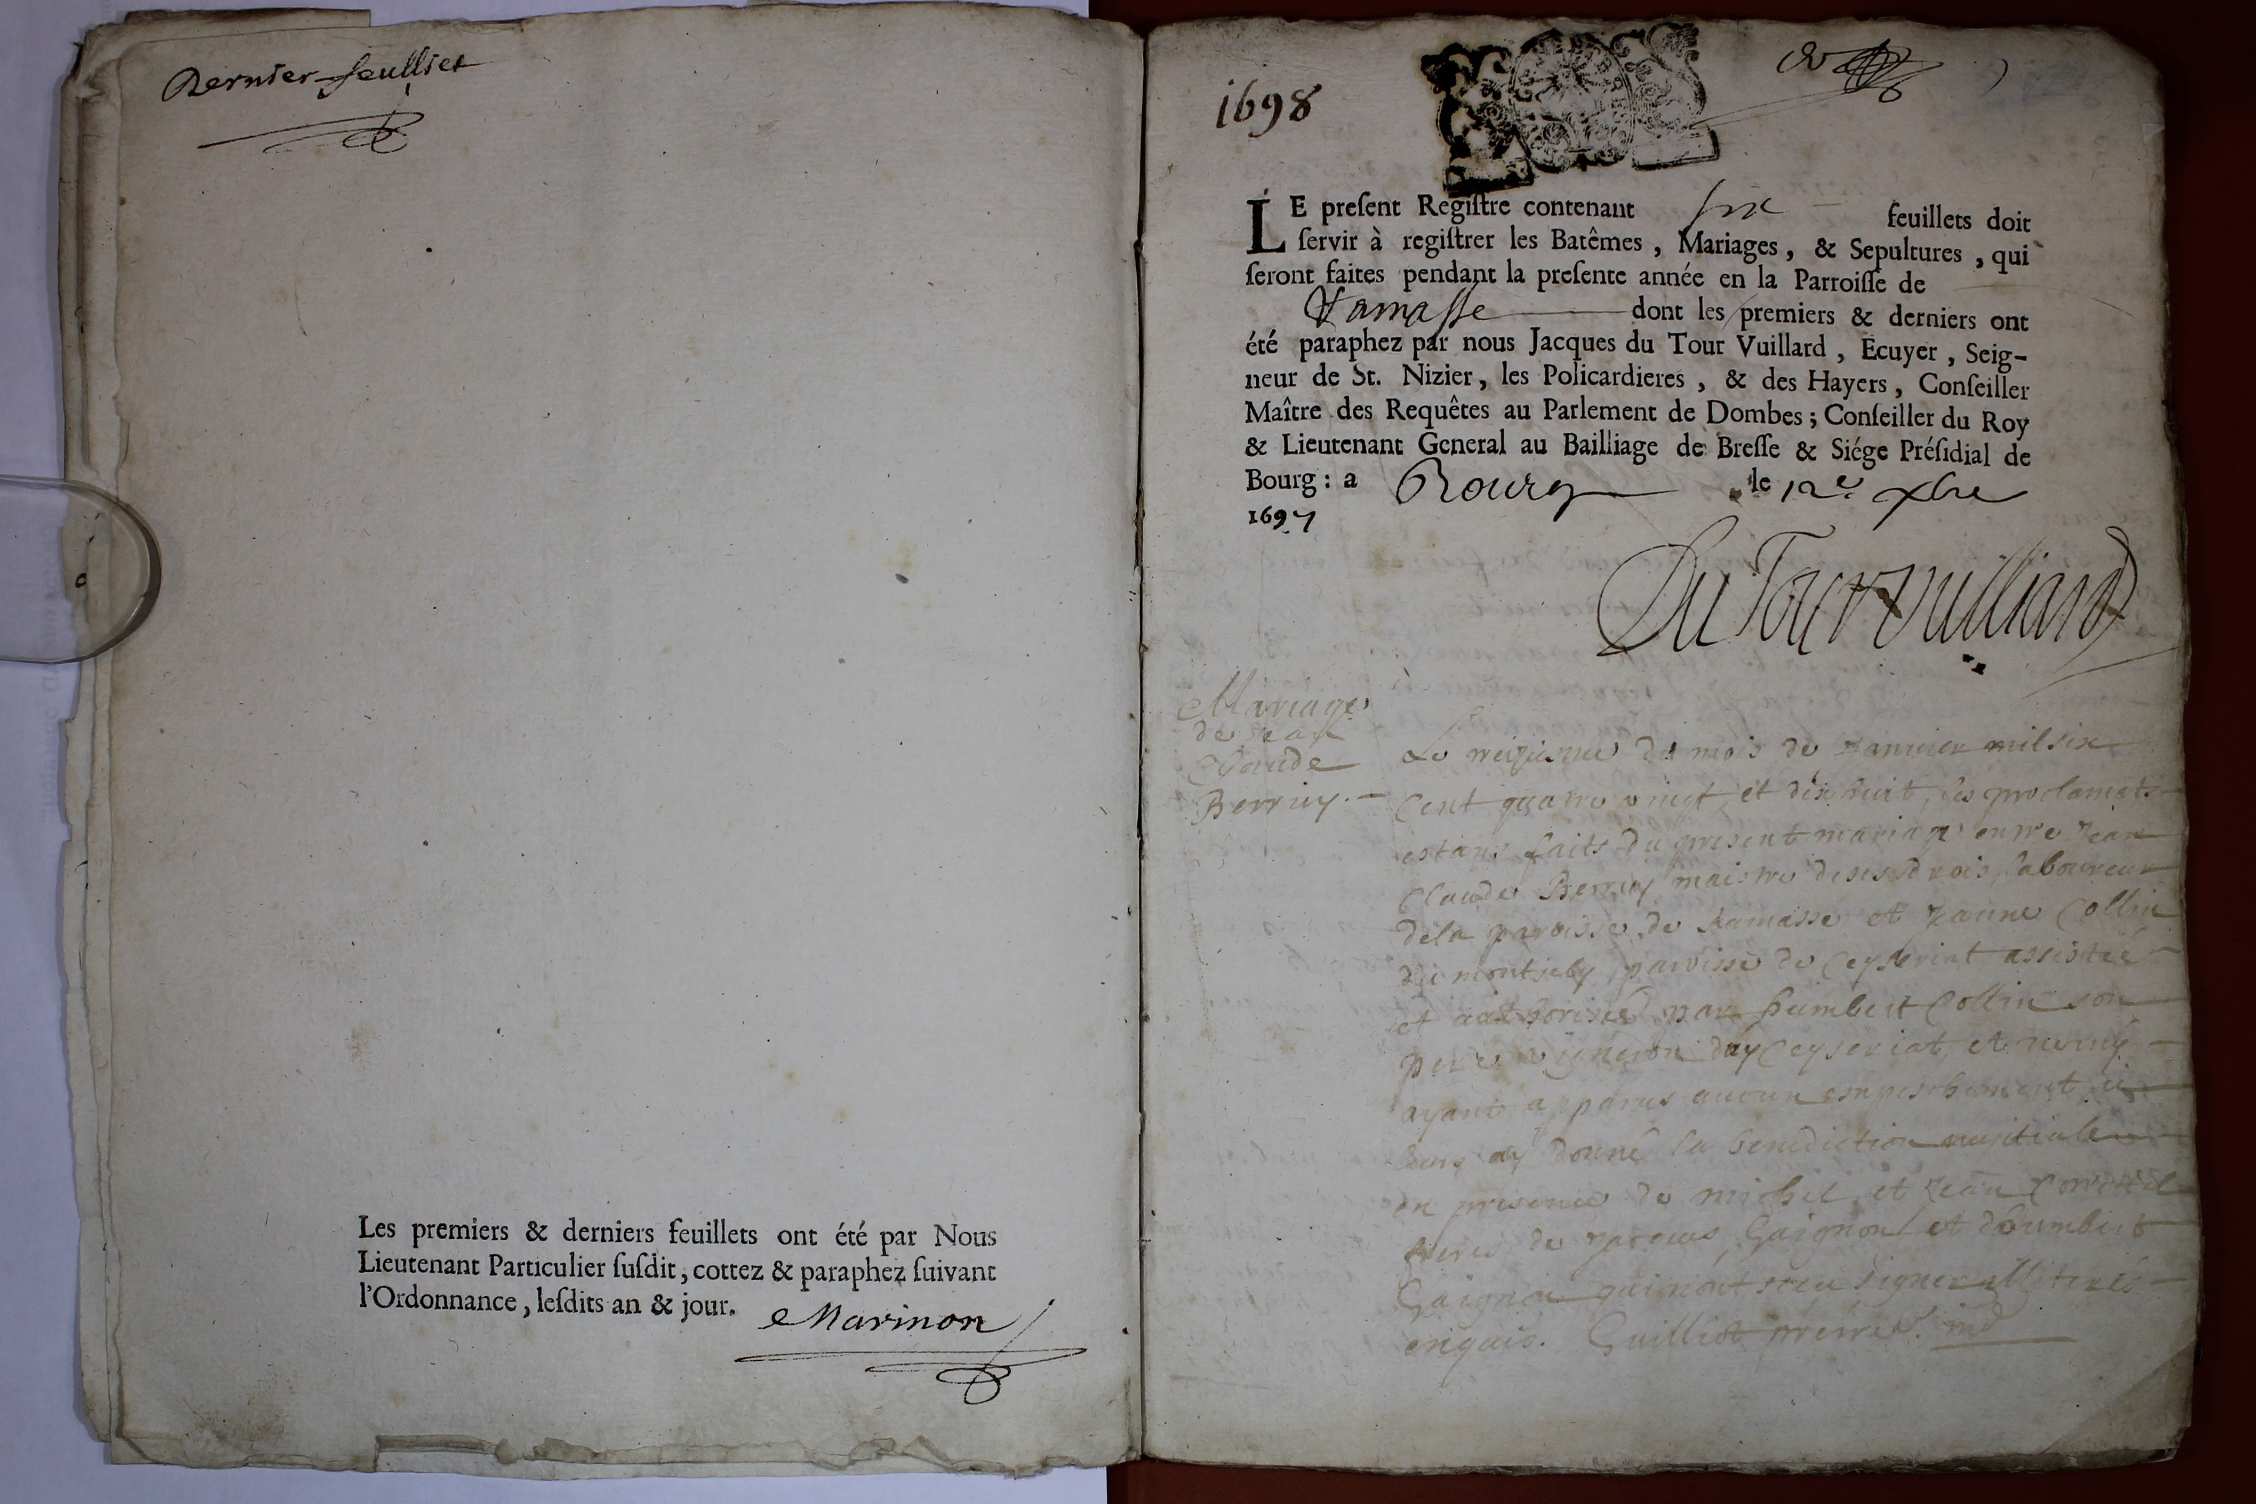 Dernier feulliet
Les premiers & derniers feuillets ont été par Nous
Lieutenant Particulier ſuſdit, cottez & paraphez ſuivant
l'Ordonnance, leſdits an & jour.
Marinon
1698
LE preſent Regiſtre contenant six feuillets doit
ſervir à regiſtrer les Batêmes, Mariages, & Sepultures, qui
ſeront faites pendant la preſente année en la Parroiſſe de
Ramasse dont les premiers & derniers ont
été paraphez par nous Jacques du Tour Vuillard, Ecuyer, Seig-
neur de St. Nizier, les Policardieres, & des Hayers, Conſeiller
Maître des Requêtes au Parlement de Dombes; Conſeiller du Roy
& Lieutenant General au Bailliage de Breſſe & Siége Préſidial de
Bourg: a Bourg le 12e xbre
1697
Du Tour Vuilliard
Mariage
de Jean
Claude
Berruy.
Le treiziesme du mois de Janvier mil six
cent quatre vingt et dix huit, les proclamats
estans faits du present mariage entre Jean
Claude Berruy maistre de ses drois laboureur
de la paroisse de Ramasse et Janne Collin
du paroisse de Ceyseriat assistée
et authorisée par humbert Collin son
pere vigneron Ceyseriat, et
ayant apparus aucun empeschement je
leurs ay donné la benediction nuptiale
en presence de michel et Jean
de Jacques Gaignon et d'humbert
Gaignon qui n'ont sceu signer
enquis. Guilliot